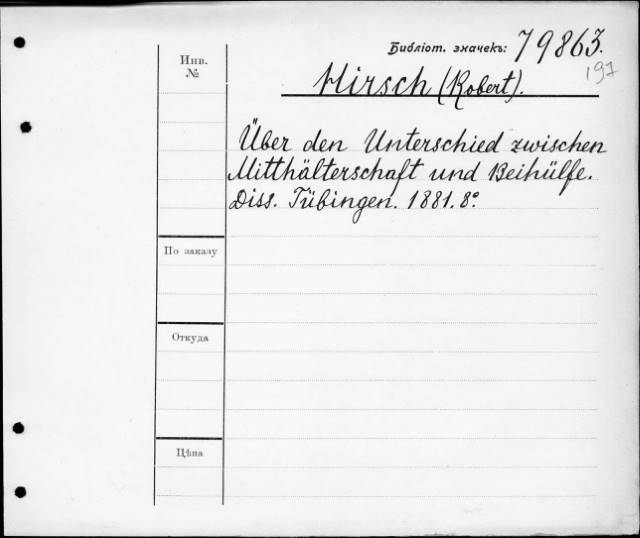 Библіот. значекъ: 79863.
197
Инв.
№
Hirsch (Robert).
Über den Unterschied zwischen
Mitthälterschaft und Beihülfe.
Diss. Tübingen. 1881. 8°
По заказу
Откуда
Цѣна